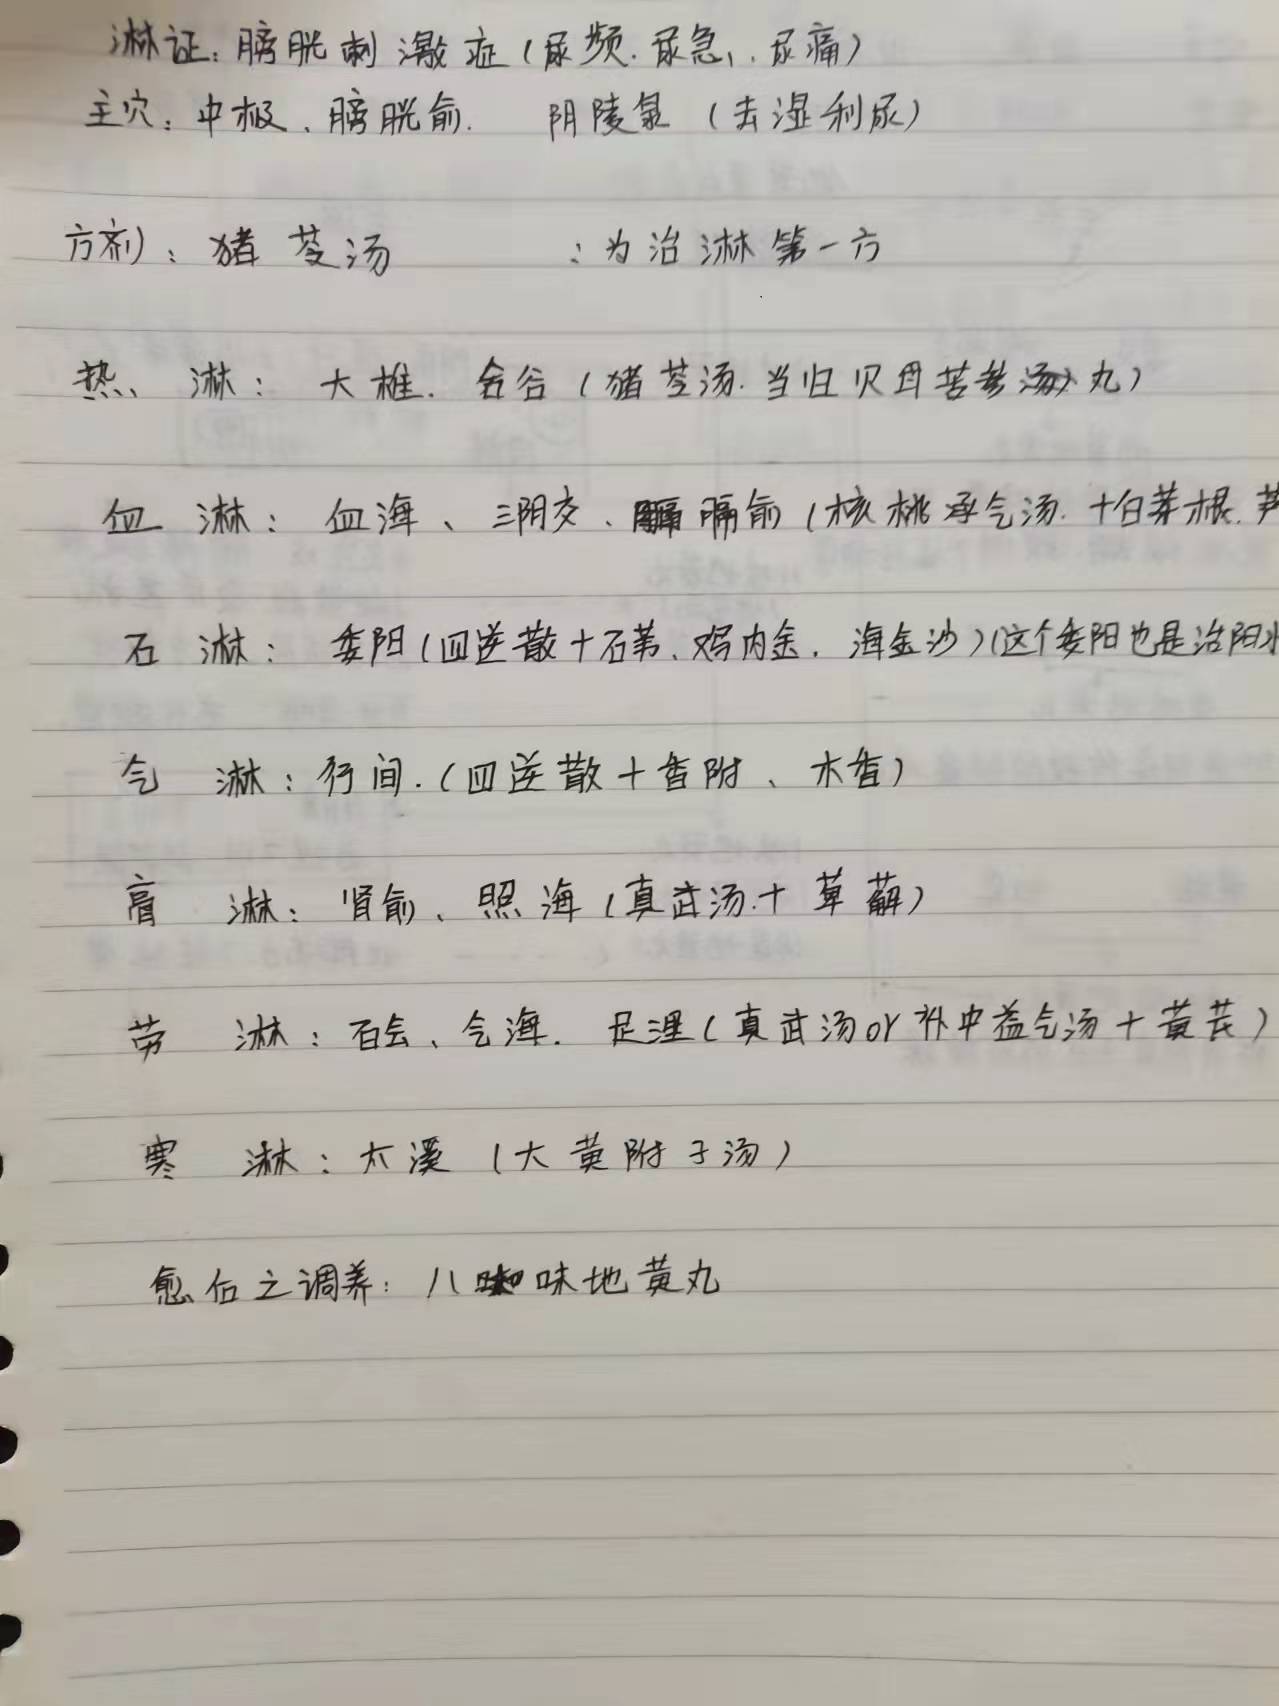 淋证：膀胱刺激症（尿频.尿急、.尿痛）
主穴：中极、膀胱俞. 阴陵泉（去湿利尿）
方剂：猪苓汤 ：为治淋第一方
热、淋：大椎.合谷（猪苓汤.当归贝母苦参汤丸）
血淋：血海、三阴交、膈俞（核桃承气汤.+白茅根.芦
石淋：委阳（四逆散+石苇、鸡内金.海金沙）（这个委阳也是治阳水
气淋：行间.（四逆散+香附、木香）
膏淋：肾俞、照海（真武汤.+萆薢）
劳淋：百会、气海.足浬（真武汤or补中益气汤+黄芪）
寒淋：太溪（大黄附子汤）
愈后之调养：八味地黄丸